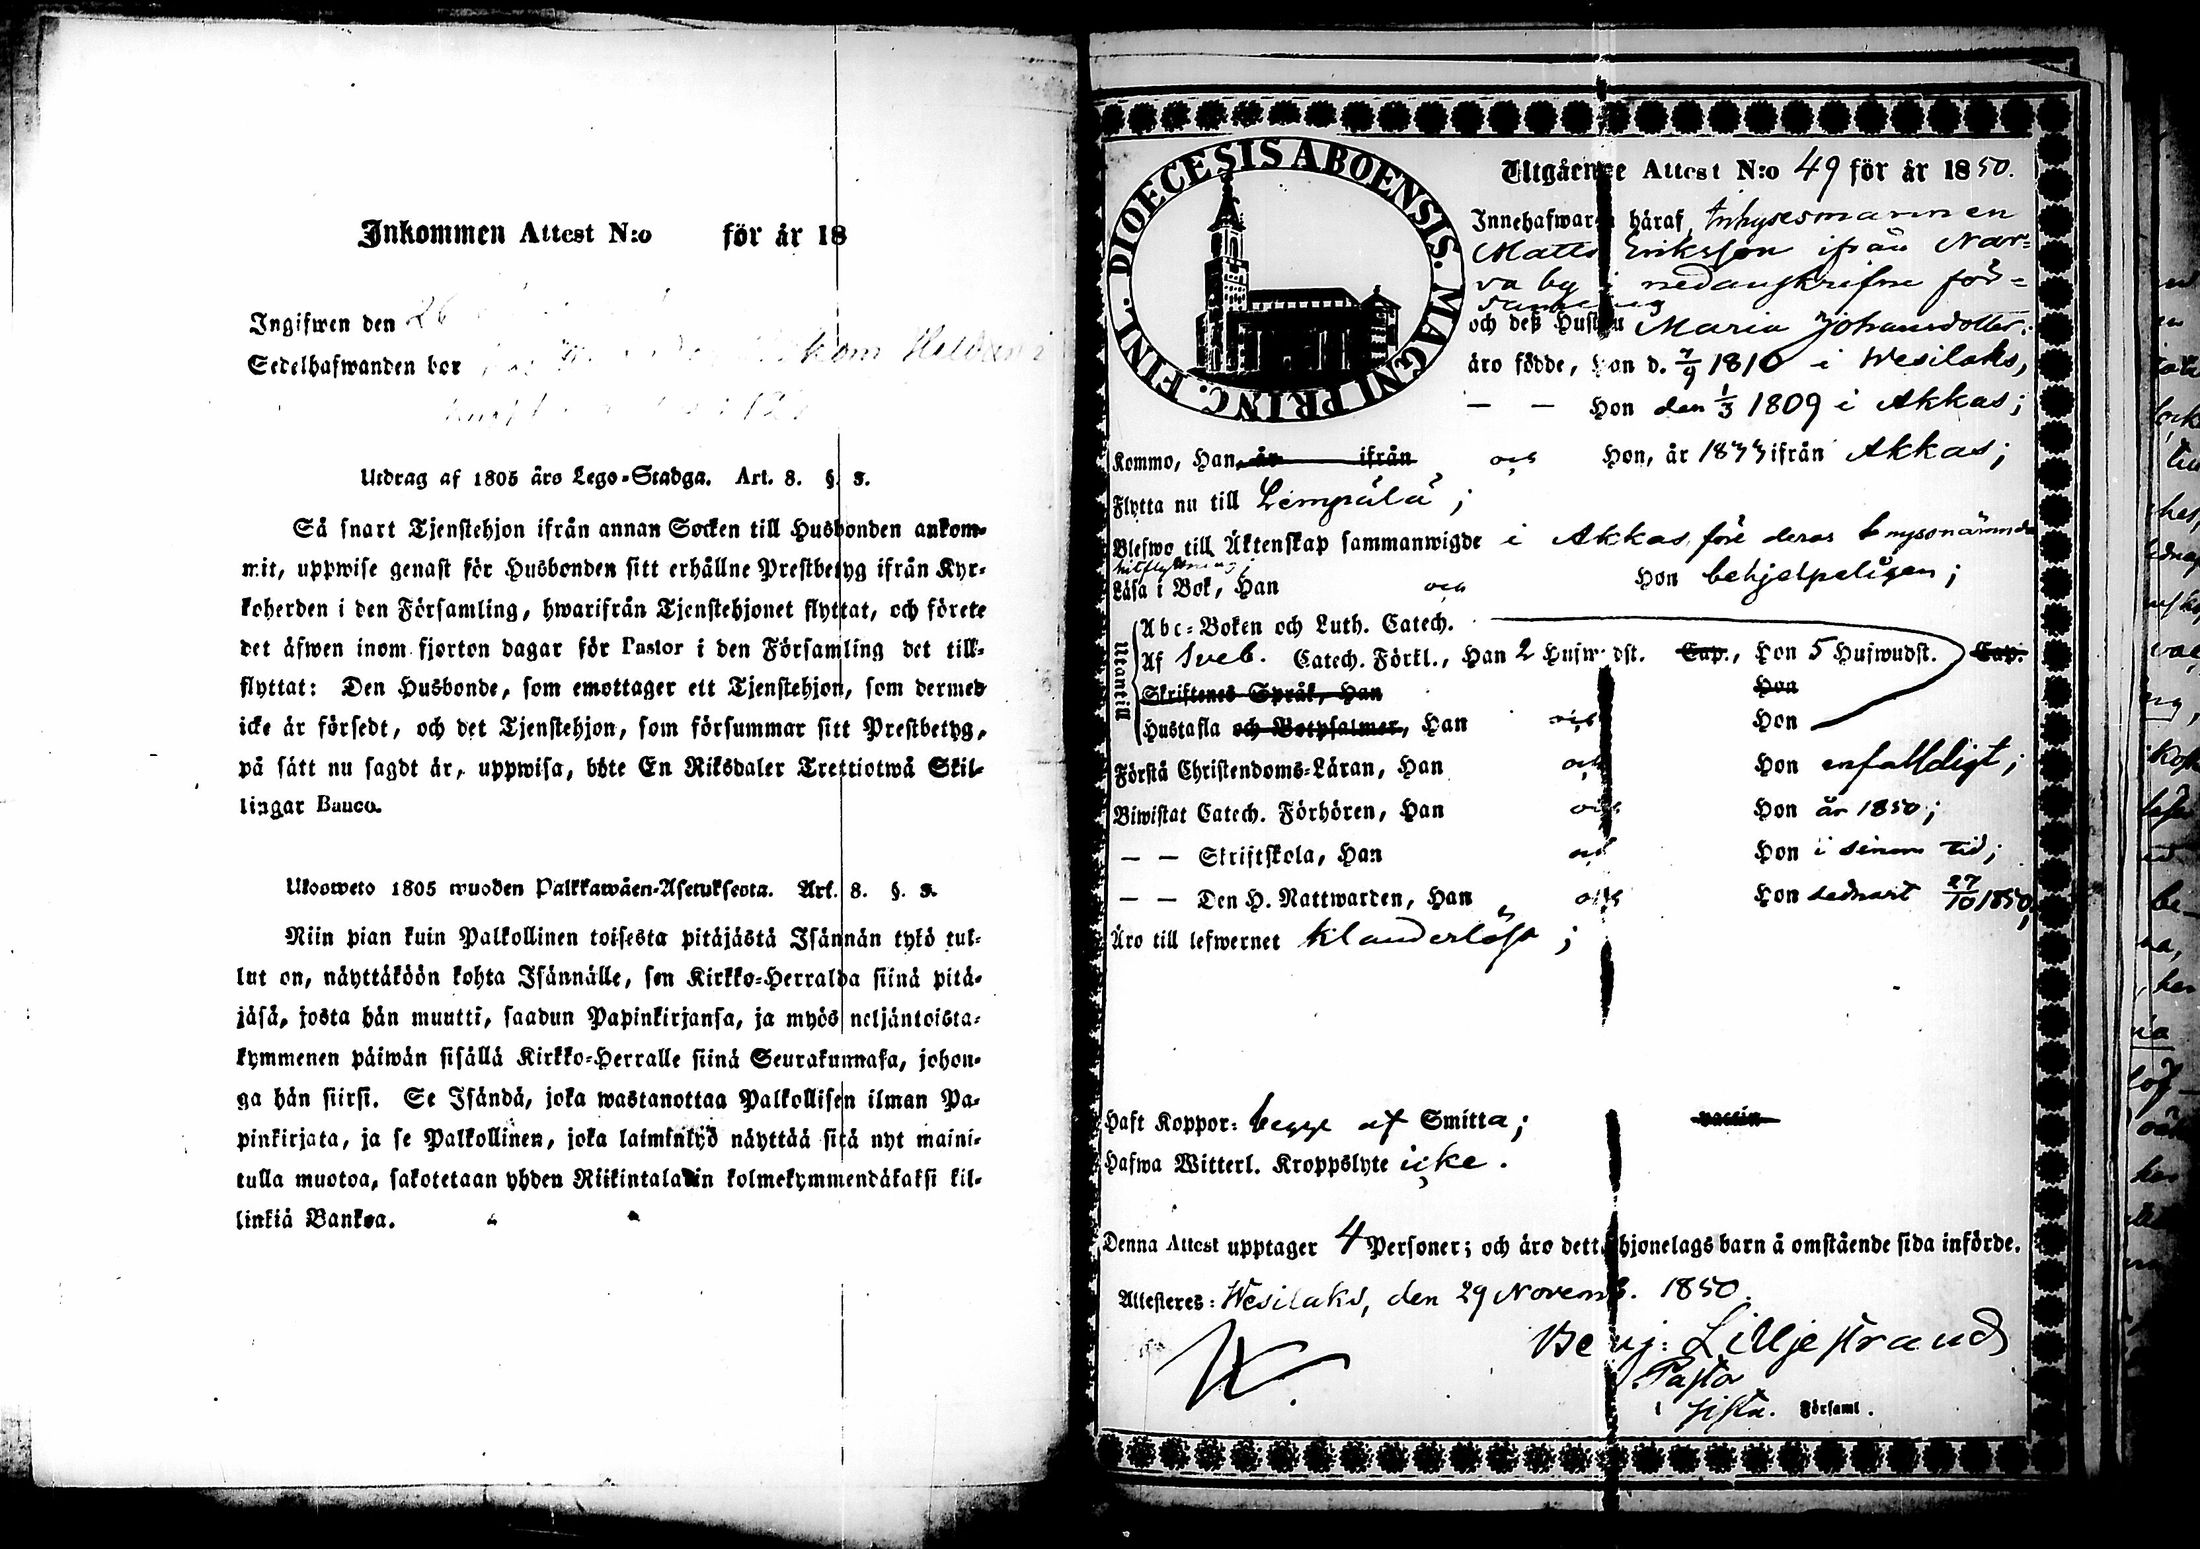 Inkommen Attest N:o för år 18
Ingifwen den 26
Sedelhafwanden bor
Utdrag af 1805 års Lego-Stadga. Art. 8. §. 3.
Så snart Tjenstehjon ifrån annan Socken till Husbonden ankom-
mit, uppwise genast för Husbonden sitt erhållne Prestbetyg ifrån Kyr-
koherden i den Församling, hwarifrån Tjenstehjonet flyttat, och förete
det äfwen inom fjorton dagar för Pastor i den Församling det till-
flyttat: Den Husbonde, som emottager ett Tjenstehjon, som dermed
icke är försedt, och det Tjenstehjon, som försummar sitt Prestbetyg,
på sätt nu sagdt är, uppwisa, böte En Riksdaler Trettiotwå Skil-
lingar Banco.
Ulosweto 1805 wuoden Palkkawäen-Asetuksesta. Art. 8. §. 3.
Niin pian kuin Palkollinen toisesta pitäjästä Isännän tykö tul-
lut on, näyttäköön kohta Isännälle, sen Kirkko-Herralda siinä pitä-
jäsä, josta hän muutti, saadun Papinkirjansa, ja myös neljäntoista-
kymmenen päiwän sisällä Kirkko-Herralle siinä Seurakunnasa, johon-
ga hän siirsi. Se Isändä, joka wastanottaa Palkollisen ilman Pa-
pinkirjata, ja se Palkollinen, joka laimintyö näyttää sitä nyt maini-
tulla muotoa, sakotetaan yhden Riikintaladin kolmekymmendäkaksi kil-
linkiä Bankoa.
DIOECESIS ABOENSIS. MAGNI PRINC. FINL.
Utgående Attest N:o 49 för år 1850.
Innehafwaren häraf, Inhysesmannen
Matts Eriksson ifrån Nar-
va by i nedanskrefne för-
samling
och deß Hustru Maria Johansdotter.
äro födde, Han d. 7/9 1810 i Wesilaks,
— — Hon den 1/3 1809 i Akkas;
Kommo, Han, år ifrån och Hon, år 1833 ifrån Akkas;
Flytta nu till Lempälä;
Blefwo till Äktenskap sammanwigde i Akkas före deras
hitflyttning;
Läsa i Bok, Han och Hon behjelpeligen;
Utantill
Abc-Boken och Luth. Catech.
Af Sveb. Catech. Förkl., Han 2 Hufwudst. Cap., Hon 5 Hufwudst. Cap.
Skriftenes Språk, Han Hon
Hustafla och Botpsalmer, Han och Hon
Förstå Christendoms-Läran, Han och Hon enfalldigt;
Biwistat Catech. Förhören, Han och Hon år 1850;
— — Skriftskola, Han och Hon i sinom tid;
— — Den H. Nattwarden, Han och Hon sednast 27/10 1850;
Äro till lefwernet klanderlöse;
Haft Koppor: begge af Smitta; vaccin
Hafwa Witterl. Kroppslyte icke.
Denna Attest upptager 4 Personer; och äro detta hjonelags barn å omstående sida införde.
Attesteres: Wesilaks, den 29 Novemb. 1850.
Benj: Lilljestrand
Pastor
i sista. Församl.